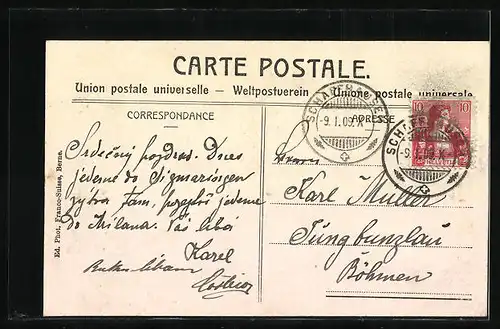 CARTE POSTALE.
Union postale universelle — Weltpostverein — Unione postale universale
CORRESPONDANCE
ADRESSE
SCHAFFHAUSEN
-9.I.09.
10 10
SCHAFFHAUSEN
Srdečný pozdrav. Dnes
jedeme do Sigmaringen
zítra tam, pojedeme
do Milana. Váš
Karel
Herrn
Karl Müller
Jungbunzlau
Böhmen
Ed. Phot. Franco-Suisse, Berne.